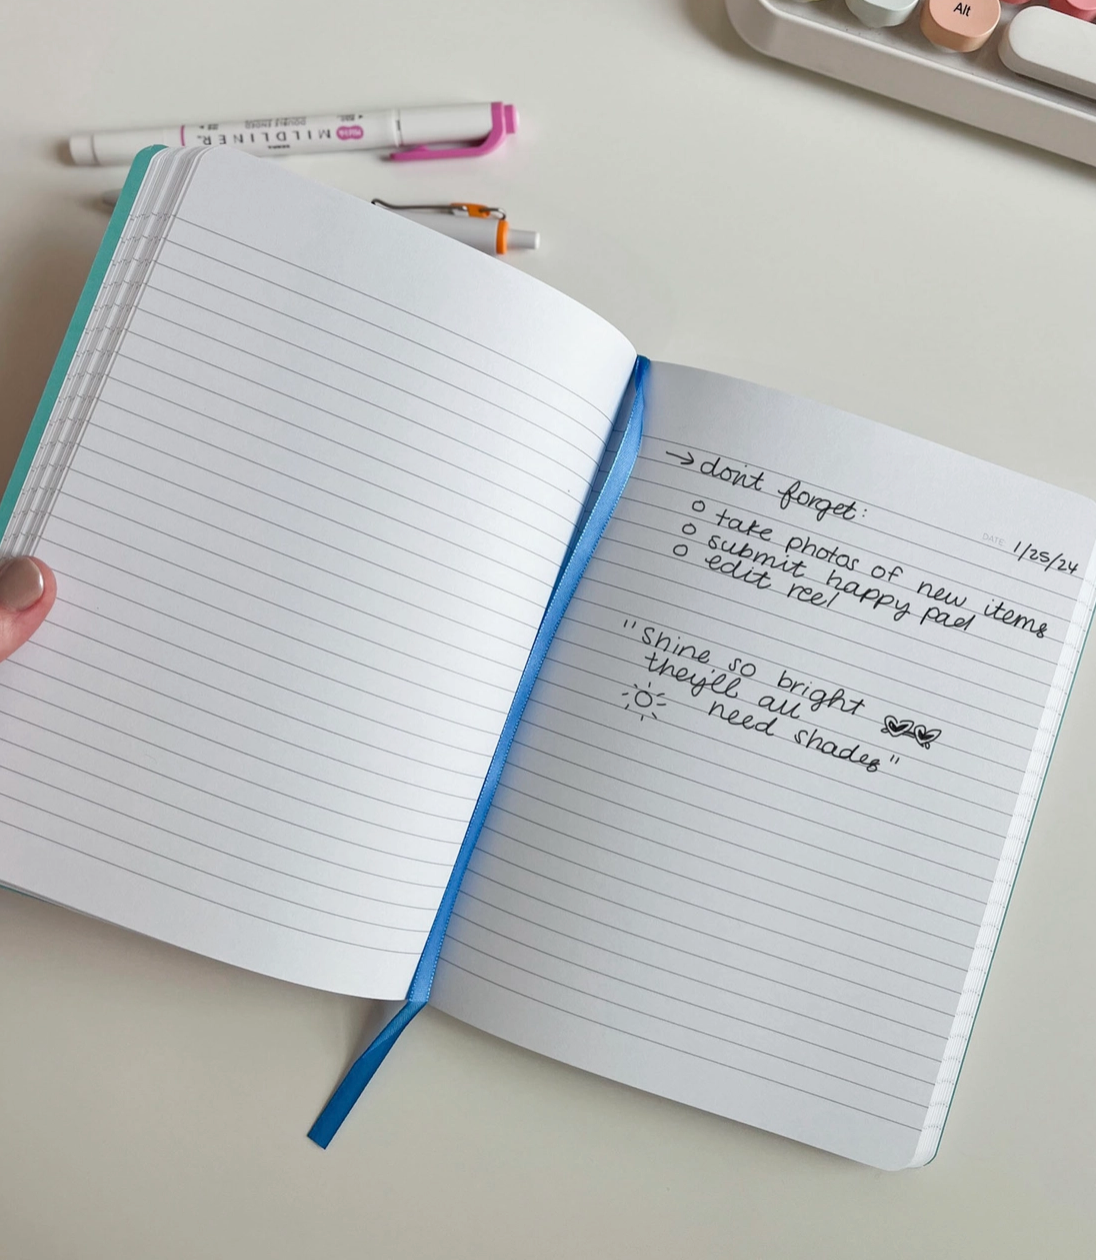 Alt
MILDLINER
DATE: 1/25/24
→ don't forget:
o take photos of new items
o submit happy pad
o edit reel
"shine so bright
they'll all
need shades"